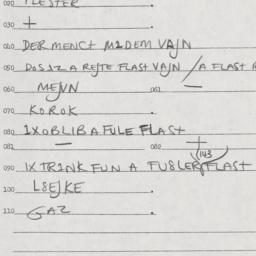 020 FLESTER .
030 +
040 DER MENCH M2DEM VAJN
050 DOS IZ A REJTE FLAST VAJN / A FLAST R
060 MEJNN . 061 —
070 KOROK
080 IX OBLIB A FULE FLAST
081 — 082 +
(143)
090 IX TR2NK FUN A FU8LER FLAST
100 L8EJKE .
110 GAZ .